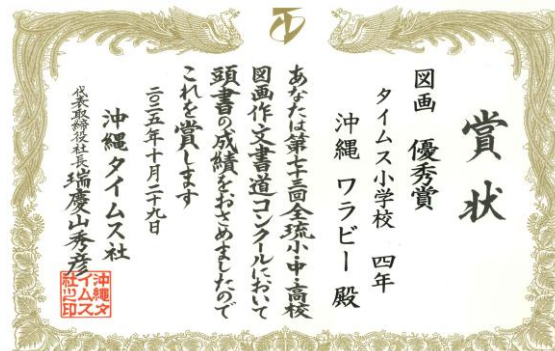 賞状
図画 優秀賞
タイムス小学校 四年
沖縄 ワラビー 殿
あなたは第七十三回全琉小・中・高校
図画作文書道コンクールにおいて
頭書の成績をおさめましたので
これを賞します
二〇二五年十月二十九日
沖縄タイムス社
代表取締役社長 瑞慶山秀彦
沖縄タ
イムス
社之印